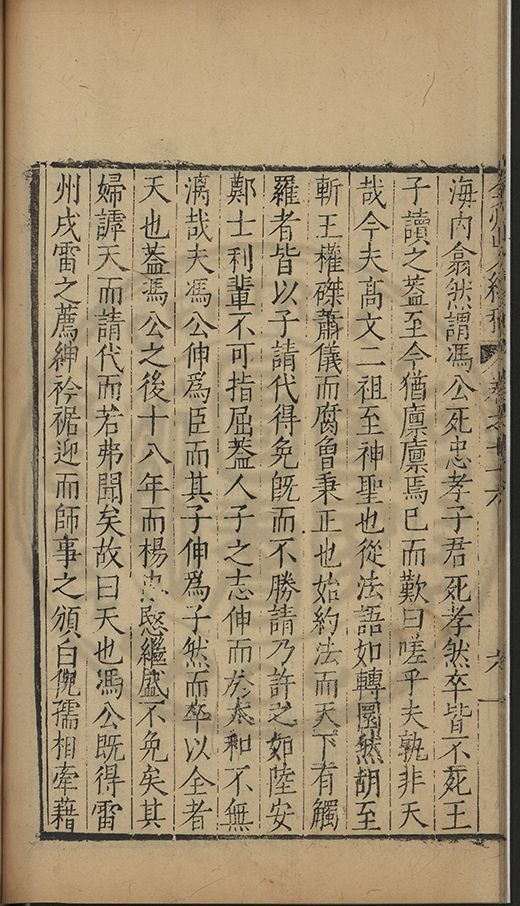 海内翕然謂馮公死忠孝子君死孝然卒皆不死王
子讀之蓋至今猶廩廩焉已而歎曰嗟乎夫孰非天
哉今夫高文二祖至神聖也從法語如轉圜然胡至
斬王權磔蕭儀而腐魯秉正也始約法而天下有觸
羅者皆以子請代得免旣而不勝請乃許之如陸安
鄭士利輩不可指屈蓋人子之志伸而於太和不無
漓哉夫馮公伸爲臣而其子伸爲子然而卒以全者
天也蓋馮公之後十八年而楊忠愍繼盛不免矣其
婦謼天而請代而若弗聞矣故曰天也馮公既得雷
州戍雷之薦紳衿裾迎而師事之頒白倪孺相牽藉